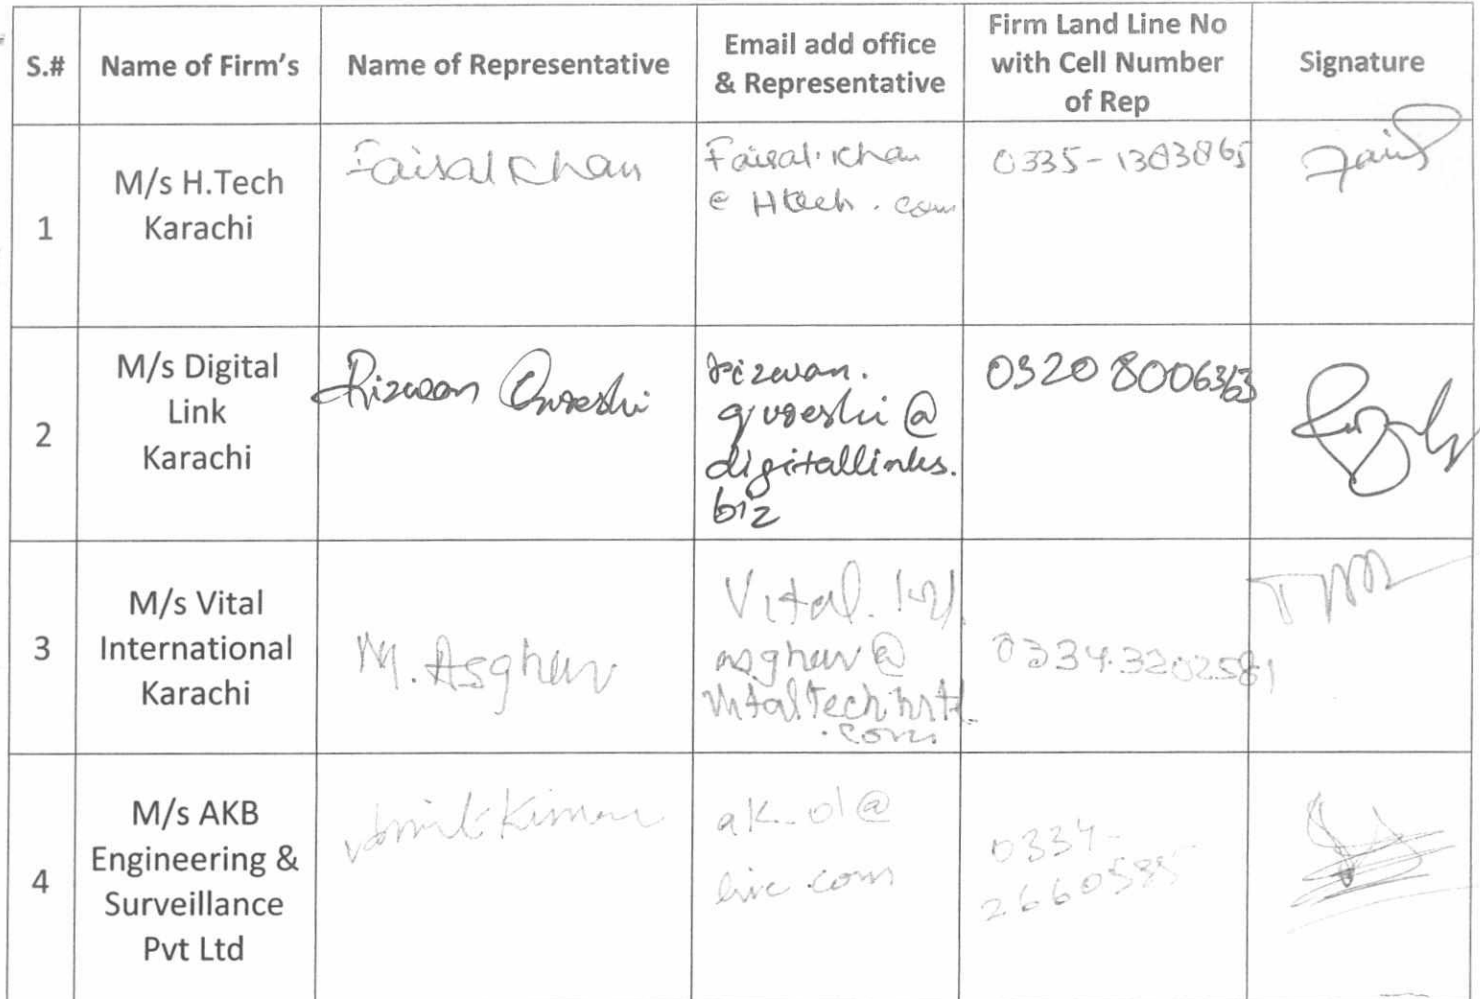 S.# Name of Firm's Name of Representative Email add office & Representative Firm Land Line No with Cell Number of Rep Signature
1 M/s H.Tech Karachi Faisal Khan Faisal.Khan @ Htech.com 0335-1383865
2 M/s Digital Link Karachi Rizwan Qureshi rizwan.qureshi@digitallinks.biz 0320 8006363
3 M/s Vital International Karachi M. Asghar Vital. asghar@ .com 0334.3202581
4 M/s AKB Engineering & Surveillance Pvt Ltd Kumar ak_01@live.com 0334-2660585